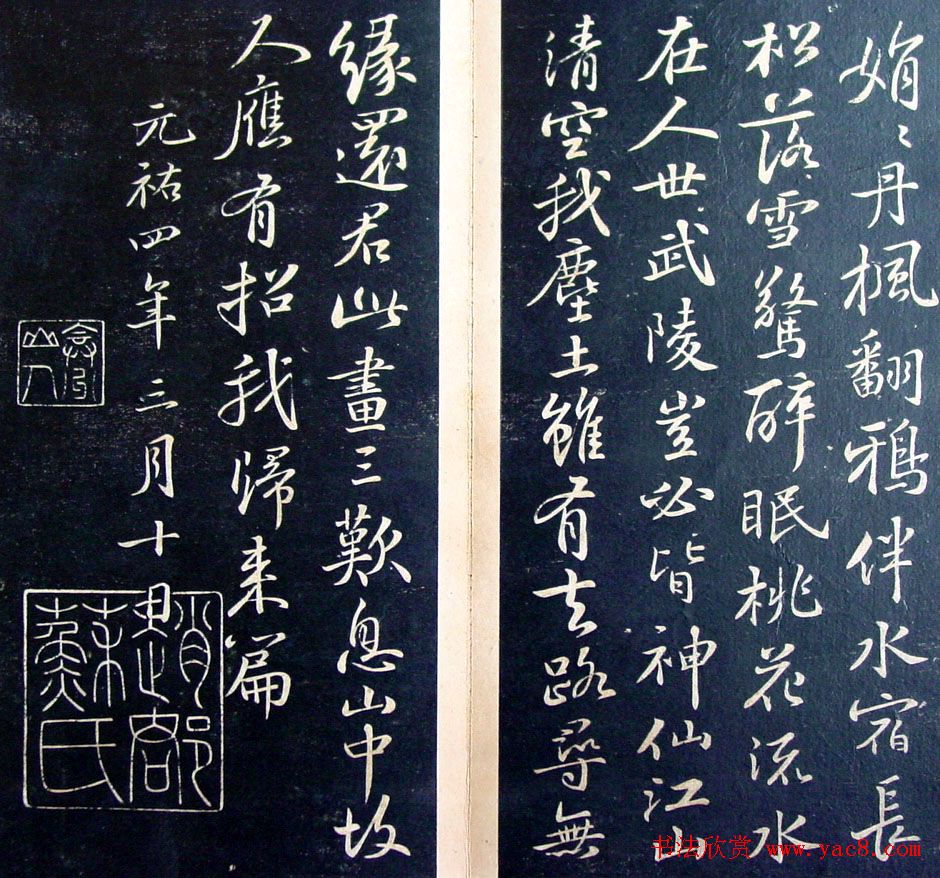 娟〻丹楓翻鴉伴水宿長
松落雪驚醉眠桃花流水
在人世武陵豈必皆神仙江山
清空我塵土雖有去路尋無
緣還君此畫三歎息山中故
人應有招我歸来篇
元祐四年三月十日
趙郡
蘇氏
书法欣赏 www.yac8.com